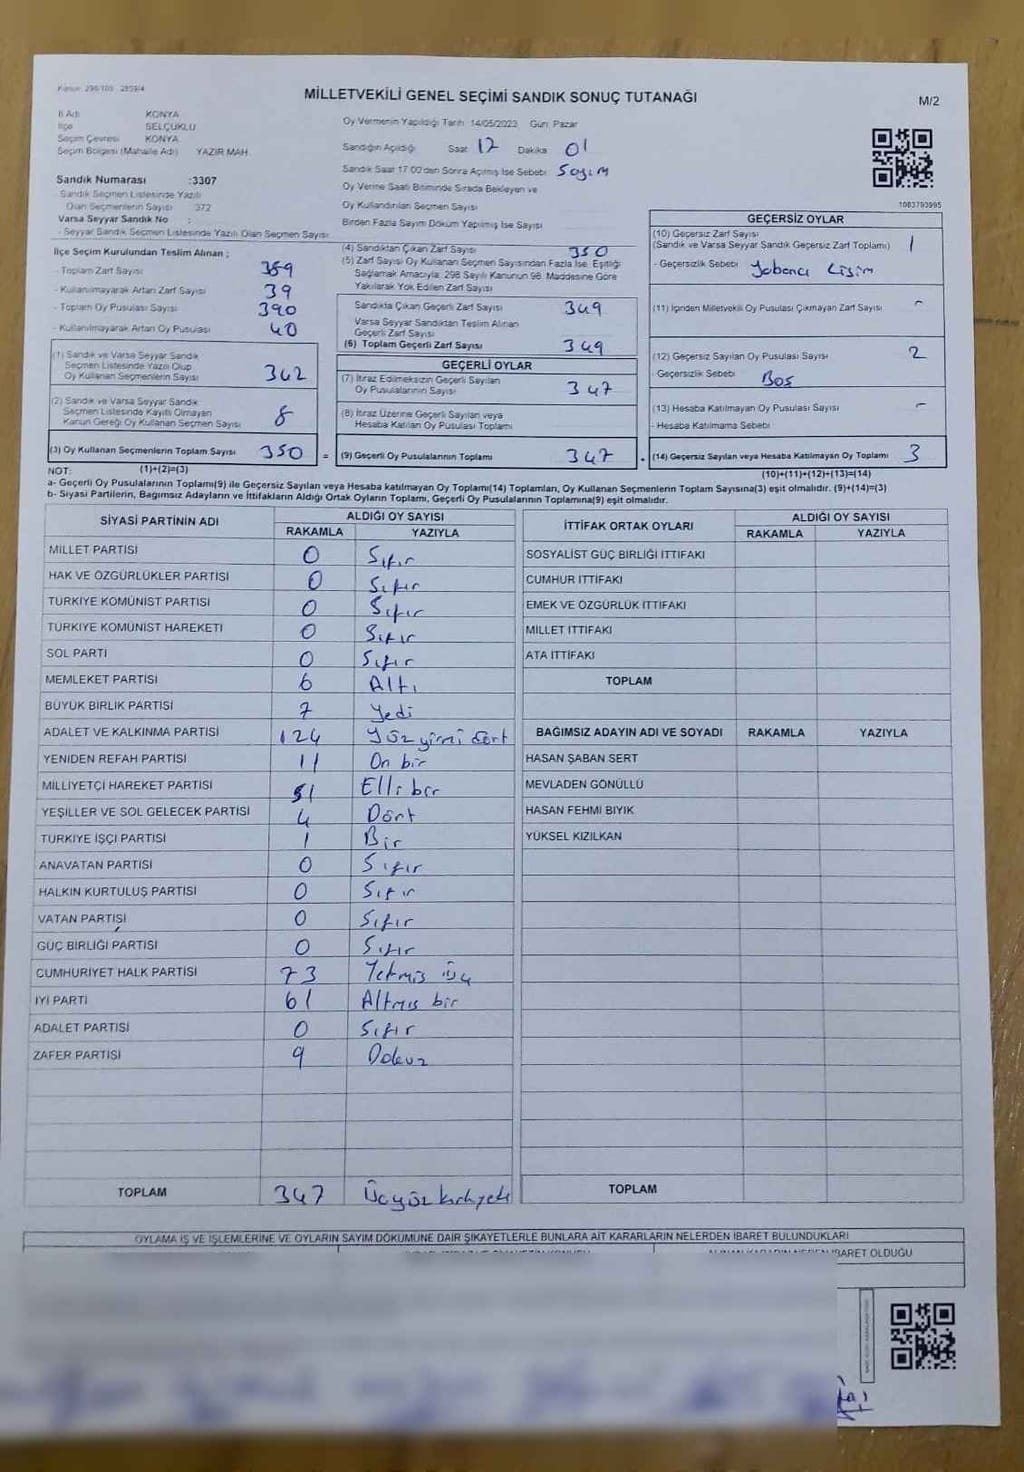 Kanun: 298/105 - 2839/4
MİLLETVEKİLİ GENEL SEÇİMİ SANDIK SONUÇ TUTANAĞI
M/2
İl Adı KONYA
İlçe SELÇUKLU
Seçim Çevresi KONYA
Seçim Bölgesi (Mahalle Adı) YAZIR MAH.
Sandık Numarası :3307
- Sandık Seçmen Listesinde Yazılı
Olan Seçmenlerin Sayısı 372
Varsa Seyyar Sandık No :
- Seyyar Sandık Seçmen Listesinde Yazılı Olan Seçmen Sayısı
Oy Vermenin Yapıldığı Tarih 14/05/2023 Gün: Pazar
Sandığın Açıldığı Saat 17 Dakika 01
Sandık Saat 17.00'dan Sonra Açılmış İse Sebebi Sayım
Oy Verme Saati Bitiminde Sırada Bekleyen ve
Oy Kullandırılan Seçmen Sayısı
Birden Fazla Sayım Döküm Yapılmış İse Sayısı
1083793995
İlçe Seçim Kurulundan Teslim Alınan ;
- Toplam Zarf Sayısı 389
- Kullanılmayarak Artan Zarf Sayısı 39
- Toplam Oy Pusulası Sayısı 390
- Kullanılmayarak Artan Oy Pusulası 40
(1) Sandık ve Varsa Seyyar Sandık
Seçmen Listesinde Yazılı Olup
Oy Kullanan Seçmenlerin Sayısı 342
(2) Sandık ve Varsa Seyyar Sandık
Seçmen Listesinde Kayıtlı Olmayan
Kanun Gereği Oy Kullanan Seçmen Sayısı 8
(3) Oy Kullanan Seçmenlerin Toplam Sayısı 350 =
(4) Sandıktan Çıkan Zarf Sayısı 350
(5) Zarf Sayısı Oy Kullanan Seçmen Sayısından Fazla İse, Eşitliği
Sağlamak Amacıyla; 298 Sayılı Kanunun 98. Maddesine Göre
Yakılarak Yok Edilen Zarf Sayısı
Sandıkta Çıkan Geçerli Zarf Sayısı 349
Varsa Seyyar Sandıktan Teslim Alınan
Geçerli Zarf Sayısı
(6) Toplam Geçerli Zarf Sayısı 349
GEÇERLİ OYLAR
(7) İtiraz Edilmeksizin Geçerli Sayılan
Oy Pusulalarının Sayısı 347
(8) İtiraz Üzerine Geçerli Sayılan veya
Hesaba Katılan Oy Pusulası Toplamı
(9) Geçerli Oy Pusulalarının Toplamı 347
GEÇERSİZ OYLAR
(10) Geçersiz Zarf Sayısı
(Sandık ve Varsa Seyyar Sandık Geçersiz Zarf Toplamı) 1
- Geçersizlik Sebebi Yabancı Cisim
(11) İçinden Milletvekili Oy Pusulası Çıkmayan Zarf Sayısı -
(12) Geçersiz Sayılan Oy Pusulası Sayısı 2
- Geçersizlik Sebebi Boş
(13) Hesaba Katılmayan Oy Pusulası Sayısı -
- Hesaba Katılmama Sebebi
(14) Geçersiz Sayılan veya Hesaba Katılmayan Oy Toplamı 3
NOT: (1)+(2)=(3) (10)+(11)+(12)+(13)=(14)
a- Geçerli Oy Pusulalarının Toplamı(9) ile Geçersiz Sayılan veya Hesaba katılmayan Oy Toplamı(14) Toplamları, Oy Kullanan Seçmenlerin Toplam Sayısına(3) eşit olmalıdır. (9)+(14)=(3)
b- Siyasi Partilerin, Bağımsız Adayların ve İttifakların Aldığı Ortak Oyların Toplamı, Geçerli Oy Pusulalarının Toplamına(9) eşit olmalıdır.
SİYASİ PARTİNİN ADI ALDIĞI OY SAYISI
RAKAMLA YAZIYLA
MİLLET PARTİSİ 0 Sıfır
HAK VE ÖZGÜRLÜKLER PARTİSİ 0 Sıfır
TÜRKİYE KOMÜNİST PARTİSİ 0 Sıfır
TÜRKİYE KOMÜNİST HAREKETİ 0 Sıfır
SOL PARTİ 0 Sıfır
MEMLEKET PARTİSİ 6 Altı
BÜYÜK BİRLİK PARTİSİ 7 Yedi
ADALET VE KALKINMA PARTİSİ 124 Yüz yirmi dört
YENİDEN REFAH PARTİSİ 11 On bir
MİLLİYETÇİ HAREKET PARTİSİ 51 Elli bir
YEŞİLLER VE SOL GELECEK PARTİSİ 4 Dört
TÜRKİYE İŞÇİ PARTİSİ 1 Bir
ANAVATAN PARTİSİ 0 Sıfır
HALKIN KURTULUŞ PARTİSİ 0 Sıfır
VATAN PARTİSİ 0 Sıfır
GÜÇ BİRLİĞİ PARTİSİ 0 Sıfır
CUMHURİYET HALK PARTİSİ 73 Yetmiş üç
İYİ PARTİ 61 Altmış bir
ADALET PARTİSİ 0 Sıfır
ZAFER PARTİSİ 9 Dokuz
TOPLAM 347 Üçyüz kırkyedi
İTTİFAK ORTAK OYLARI ALDIĞI OY SAYISI
RAKAMLA YAZIYLA
SOSYALİST GÜÇ BİRLİĞİ İTTİFAKI
CUMHUR İTTİFAKI
EMEK VE ÖZGÜRLÜK İTTİFAKI
MİLLET İTTİFAKI
ATA İTTİFAKI
TOPLAM
BAĞIMSIZ ADAYIN ADI VE SOYADI RAKAMLA YAZIYLA
HASAN ŞABAN SERT
MEVLADEN GÖNÜLLÜ
HASAN FEHMİ BIYIK
YÜKSEL KIZILKAN
TOPLAM
OYLAMA İŞ VE İŞLEMLERİNE VE OYLARIN SAYIM DÖKÜMÜNE DAİR ŞİKAYETLERLE BUNLARA AİT KARARLARIN NELERDEN İBARET BULUNDUKLARI
İBARET OLDUĞU